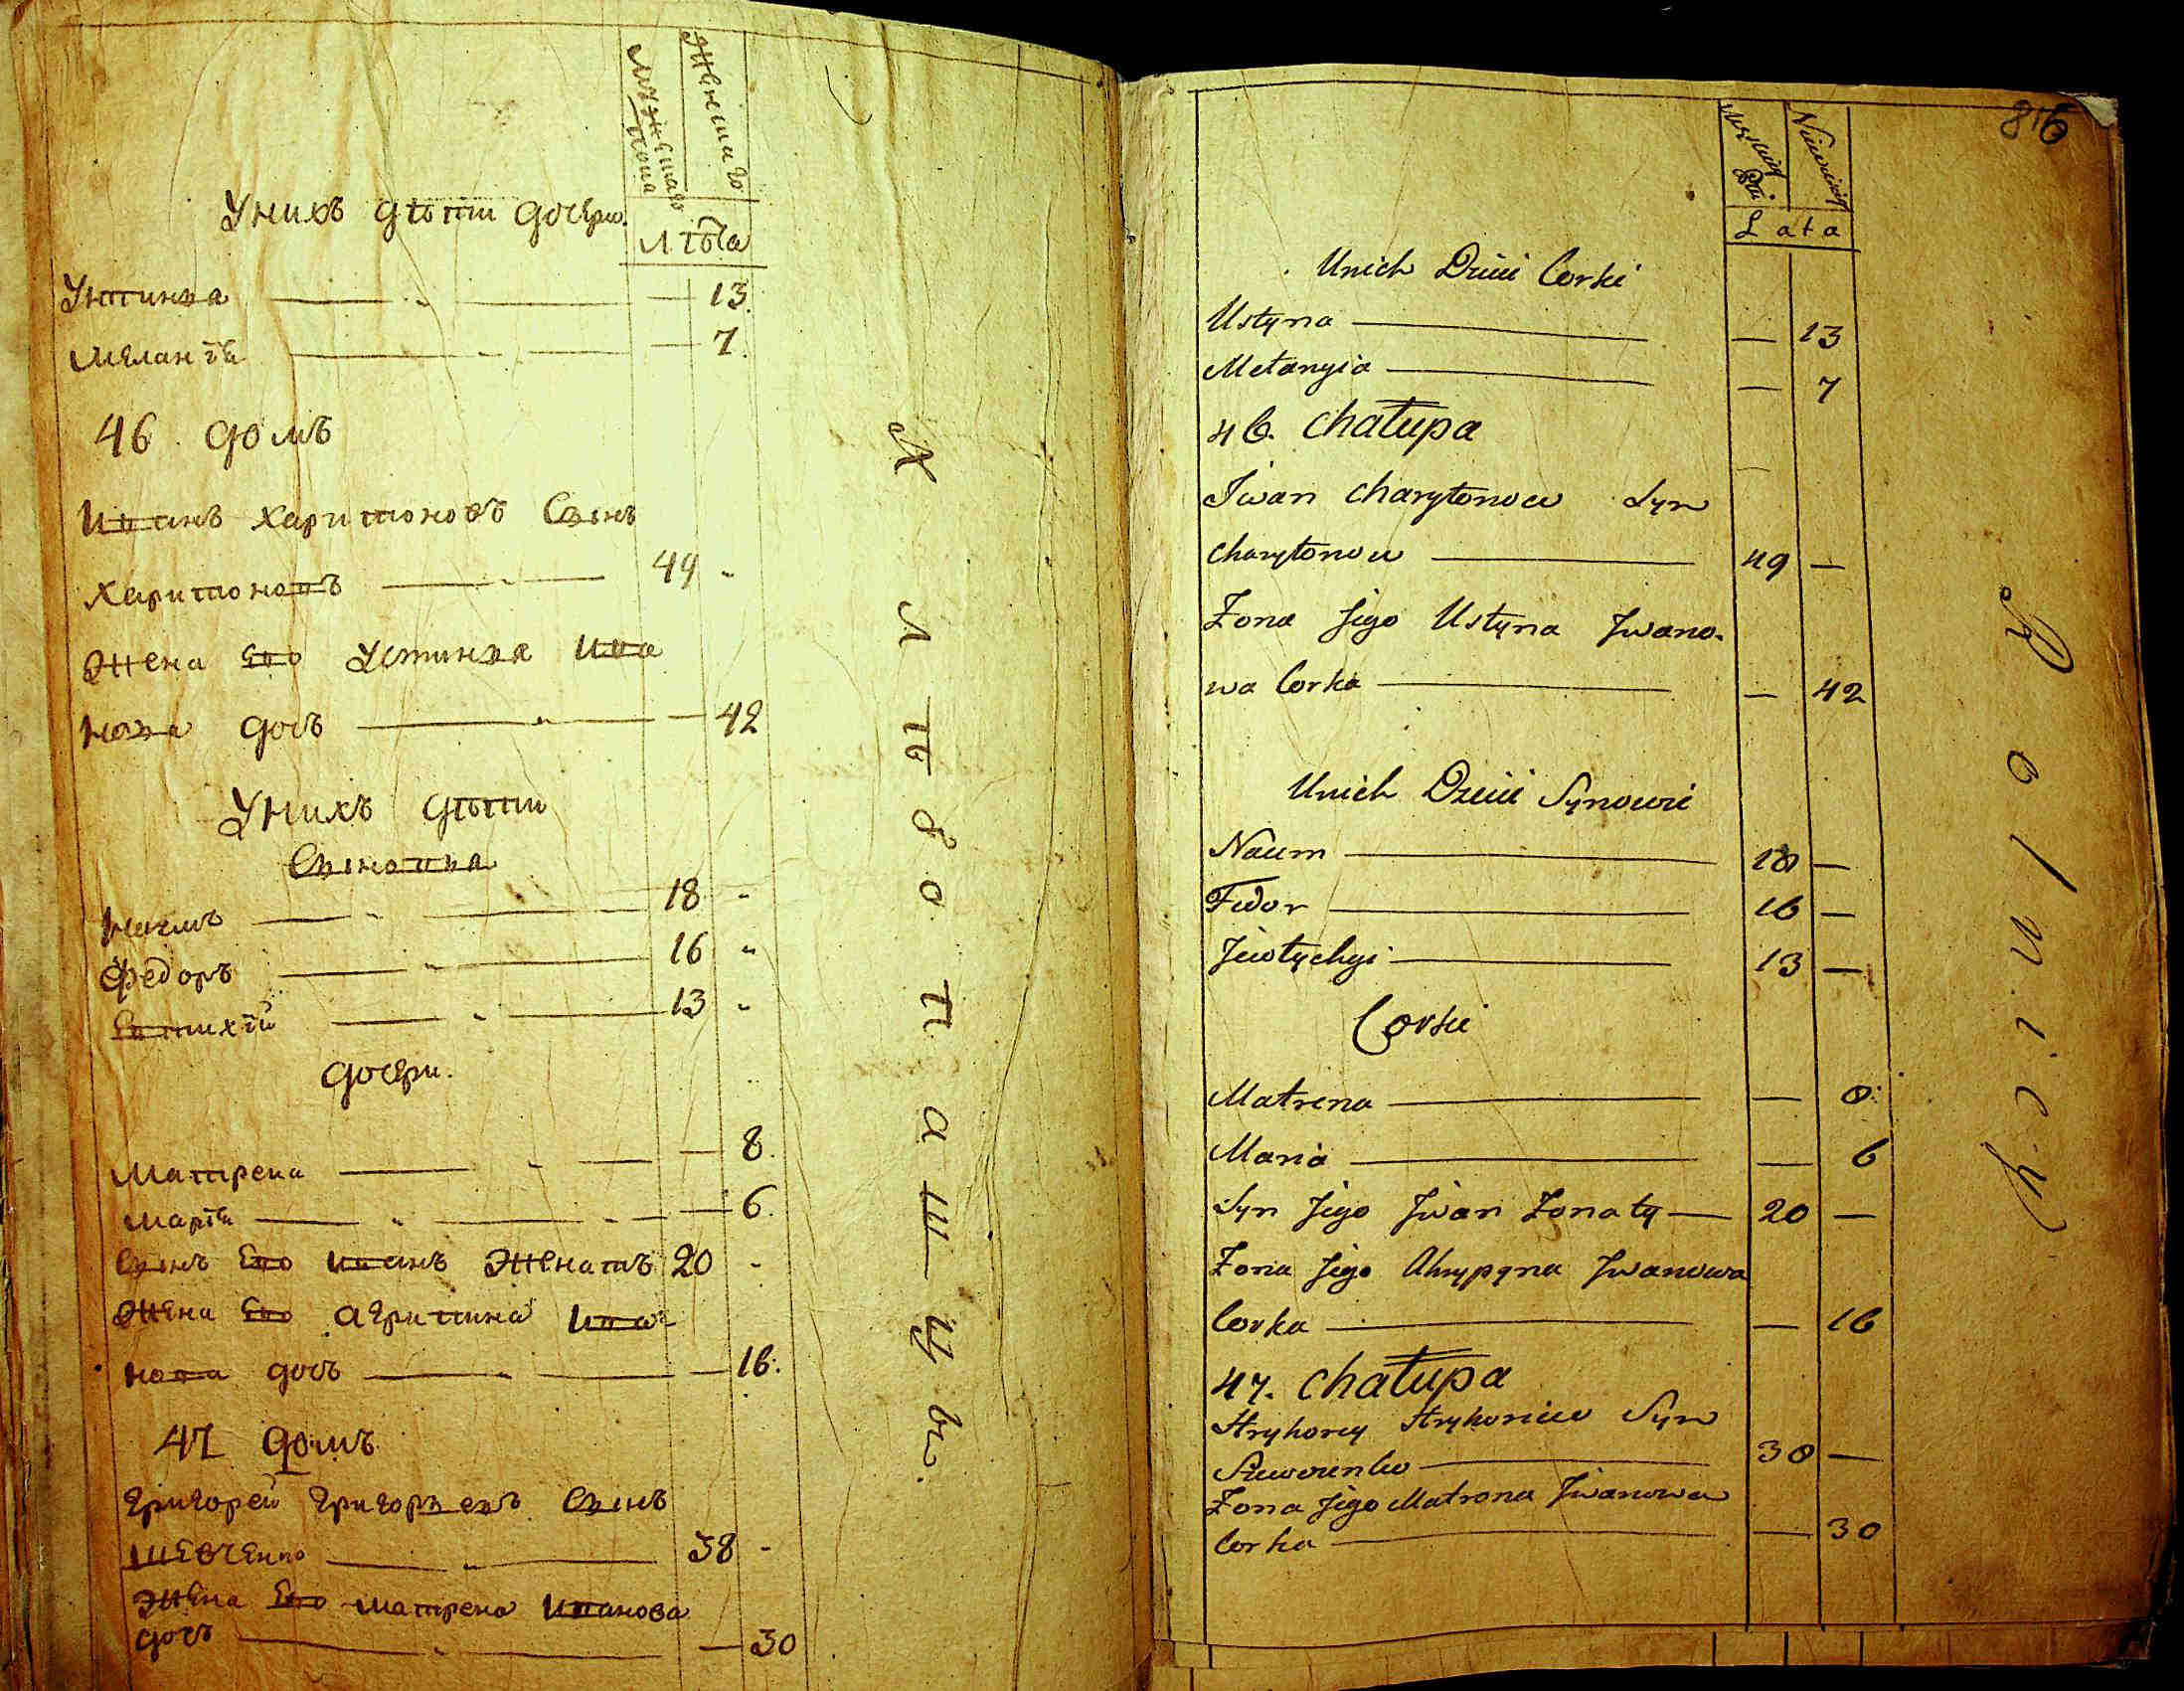 Мужескаго
пола
Женскаго
Лѣта
У нихъ дѣти дочери.
Устинья — 13.
Меланія — 7.
46 домъ
Иванъ Харитоновъ Сынъ
Харитоновъ — 49
Жена Его Устинья Ива
нова дочь — 42
У нихъ дѣти
Сыновья
Наумъ — 18
Федоръ — 16
Евтихій — 13
дочери.
Матрена — 8.
Марія — 6.
Сынъ Его Иванъ Женатъ 20
Жена Его Агрипина Ива-
нова дочь — 16.
47 домъ
Григорей Григорьевъ Сынъ
Шевченко — 38
Жена Его Матрена Иванова
дочь — 30
Хлѣбопашцы.
816
Lata
Unich Dzieci Corki
Ustyna — 13
Mełanyia — 7
46. Chałupa
Jwan Charytonow Syn
Charytonow — 49 —
Żona Jego Ustyna Jwano-
wa Corka — 42
Unich Dzieci Synowie
Naum — 18 —
Fedor — 16 —
Jewtychyi — 13 —
Corki
Matrena — 8
Maria — 6
Syn Jego Jwan Żonaty — 20 —
Żona Jego Ahrypyna Jwanowa
Corka — 16
47. Chałupa
Hryhorey Hryhoriew Syn
Szewczenko — 38 —
Żona Jego Matrona Jwanowa
Corka — 30
Rolnicy